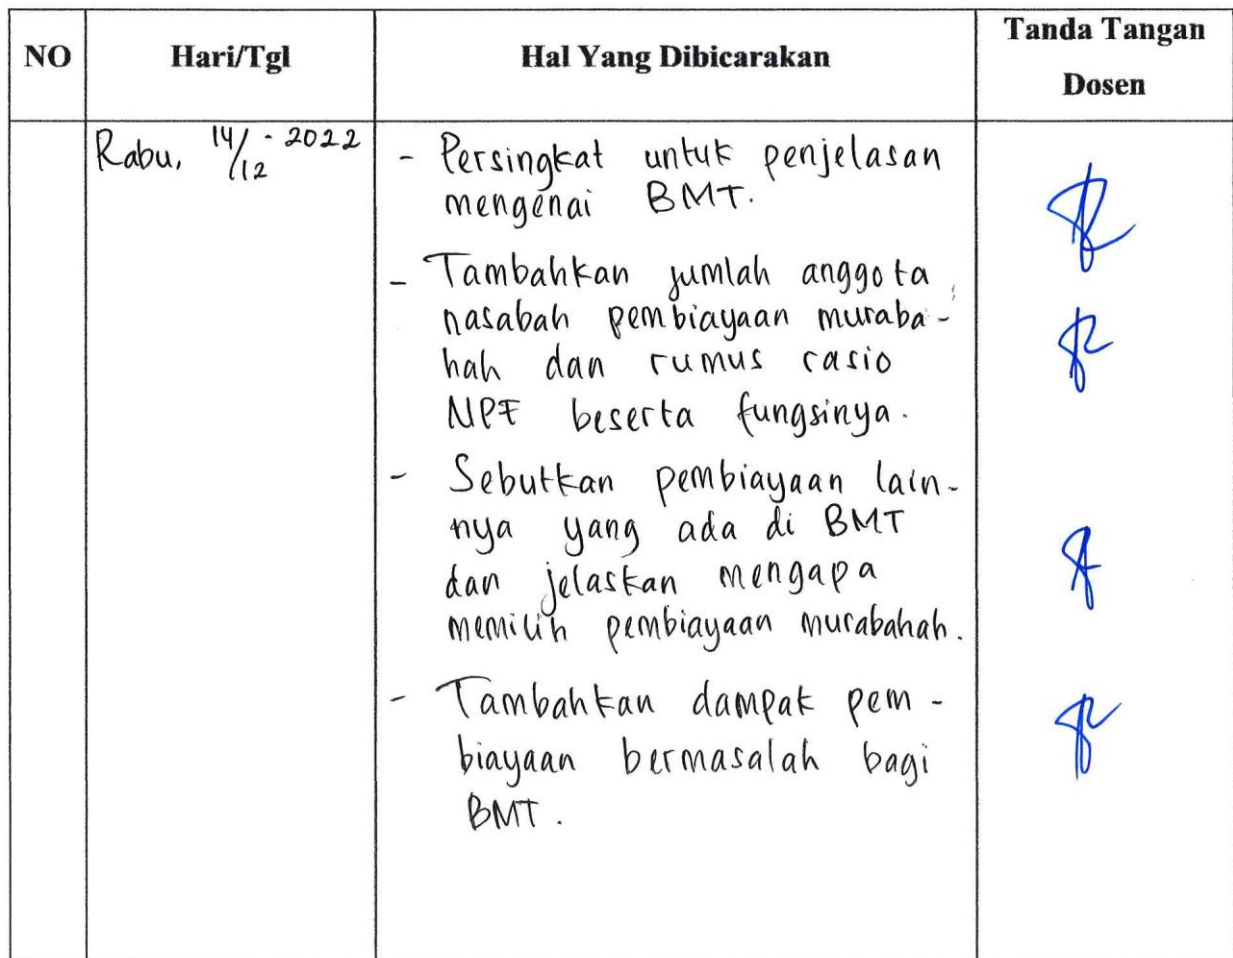 NO Hari/Tgl Hal Yang Dibicarakan Tanda Tangan
Dosen
Rabu, 14/12 - 2022
- Persingkat untuk penjelasan
mengenai BMT.
- Tambahkan jumlah anggota
nasabah pembiayaan muraba-
hah dan rumus rasio
NPF beserta fungsinya.
- Sebutkan pembiayaan lain-
nya yang ada di BMT
dan jelaskan mengapa
memilih pembiayaan murabahah.
- Tambahkan dampak pem-
biayaan bermasalah bagi
BMT.